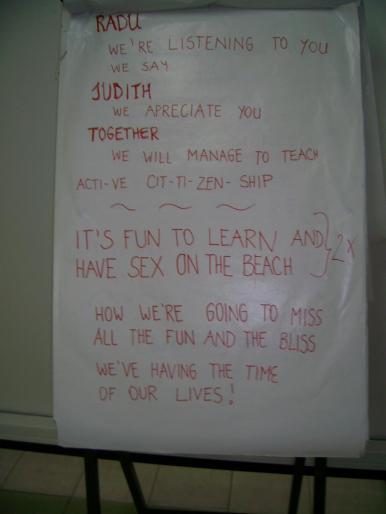 RADU
WE'RE LISTENING TO YOU
WE SAY
JUDITH
WE APRECIATE YOU
TOGETHER
WE WILL MANAGE TO TEACH
ACTI-VE CIT-TI-ZEN-SHIP
IT'S FUN TO LEARN AND
HAVE SEX ON THE BEACH } 2x
HOW WE'RE GOING TO MISS
ALL THE FUN AND THE BLISS
WE'VE HAVING THE TIME
OF OUR LIVES!